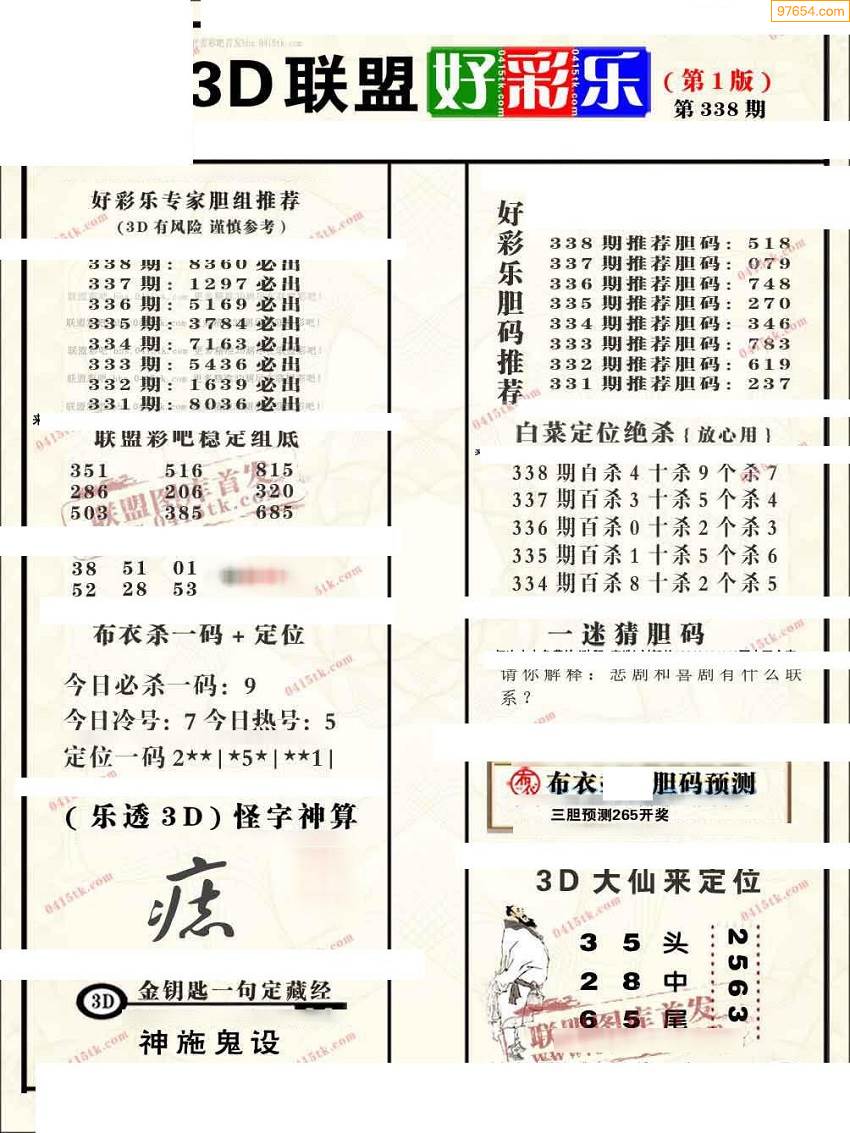 97654.com
3D联盟好彩乐
(第1版)
第338期
好彩乐专家胆组推荐
(3D有风险 谨慎参考)
338期：8360必出
337期：1297必出
336期：5169必出
335期：3784必出
334期：7163必出
333期：5436必出
332期：1639必出
331期：8036必出
联盟彩吧稳定组底
351 516 815
286 206 320
503 385 685
38 51 01
52 28 53
布衣杀一码+定位
今日必杀一码：9
今日冷号：7 今日热号：5
定位一码2**|*5*|**1|
(乐透3D)怪字神算
痣
3D 金钥匙一句定藏经
神施鬼设
好彩乐胆码推荐
338期推荐胆码：518
337期推荐胆码：079
336期推荐胆码：748
335期推荐胆码：270
334期推荐胆码：346
333期推荐胆码：783
332期推荐胆码：619
331期推荐胆码：237
白菜定位绝杀{放心用}
338期百杀4十杀9个杀7
337期百杀3十杀5个杀4
336期百杀0十杀2个杀3
335期百杀1十杀5个杀6
334期百杀8十杀2个杀5
一迷猜胆码
请你解释：悲剧和喜剧有什么联
系？
布衣 胆码预测
三胆预测265开奖
3D大仙来定位
3 5 头
2 8 中
6 5 尾
2563
联盟图库首发
0415tk.com